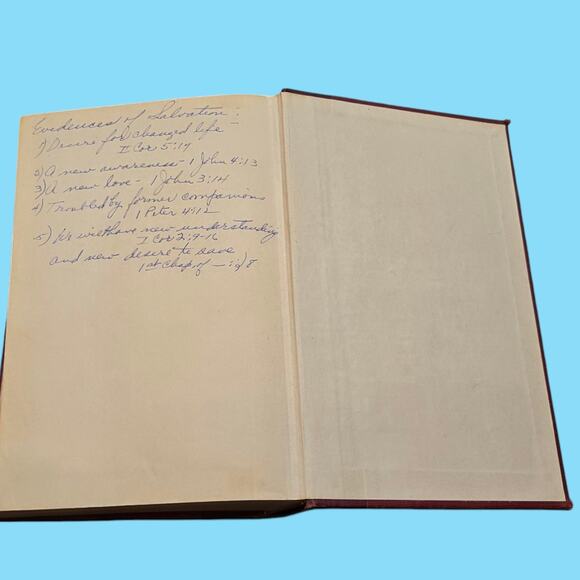 Evidences of Salvation:
1) Desire for changed life -
II Cor 5:17
2) A new awareness - 1 John 4:13
3) A new love - 1 John 3:14
4) Troubled by former companions
1 Peter 4:12
5) We will have new understanding
I Cor 2:9-16
and new desire to
1st Chap. of